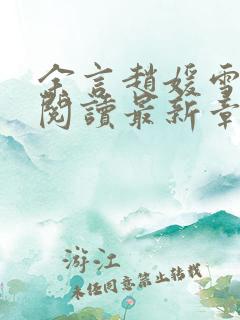 余言趙媛雪
閱讀最新章
游江
未任同意禁止转载